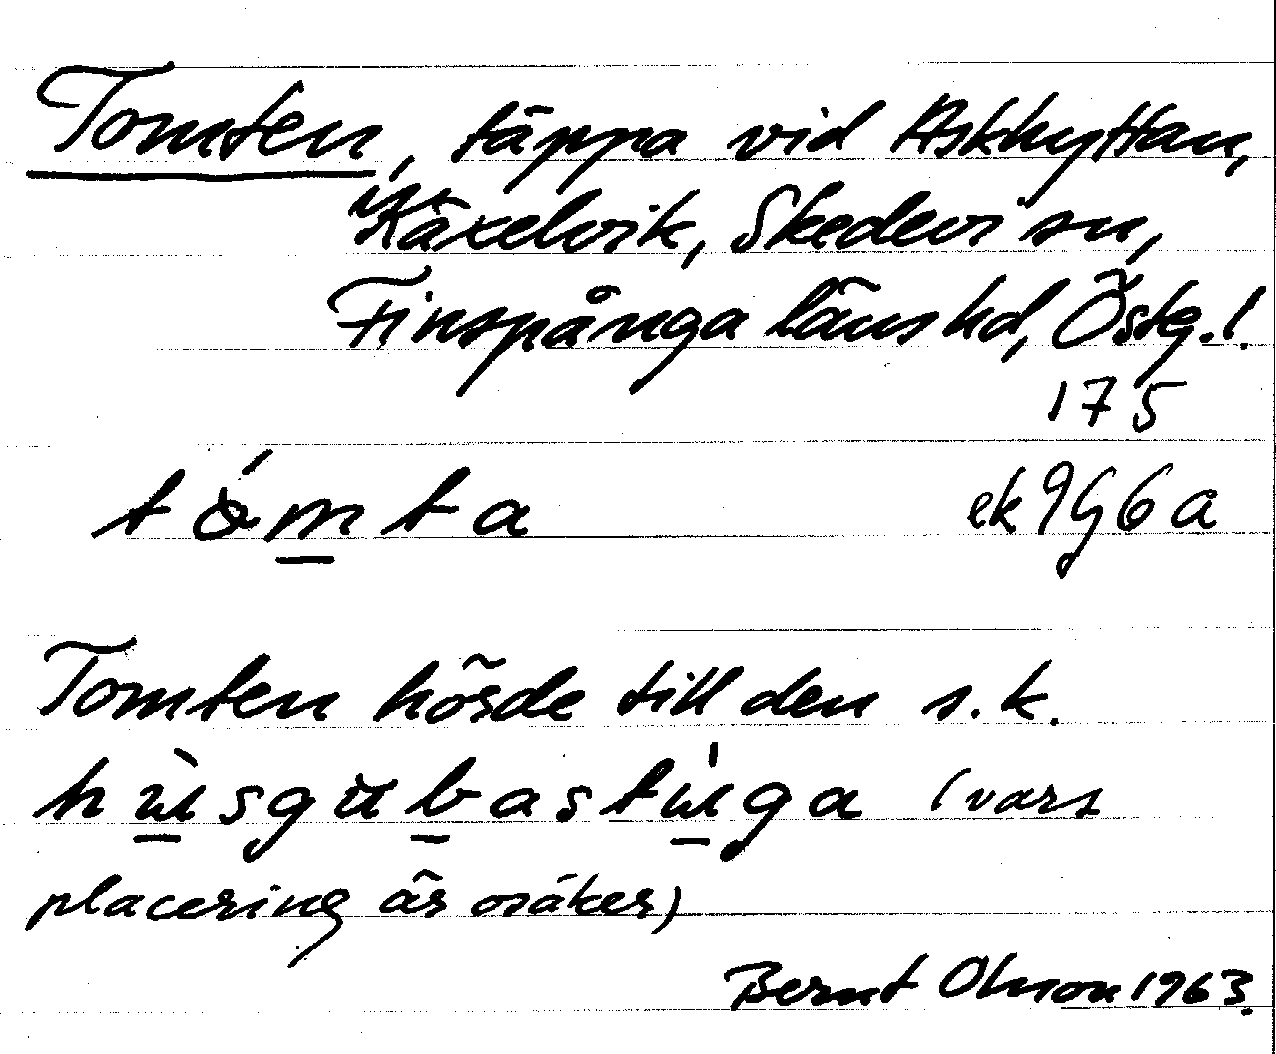 Tomten, täppa vid Askhyttan,
Käxelvik, Skedevi sn,
Finspånga läns hd, Östg. l.
175
tómta ek 9G6a
Tomten hörde till den s.k.
hùsgubastúga (vars
placering är osäker)
Bernt Olsson 1963.